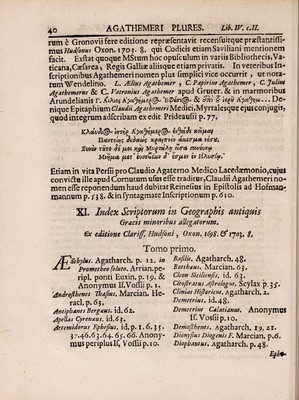 40 AGATHEMERI PLURES. Lib. IV. c. II.
rum è Gronovii fere editione repræsentavit recensuitque præstantissi-
mus Hudsonus Oxon. 1703. 8. qui Codicis etiam Saviliani mentionem
facit. Exstat quoque MStum hoc opusculum in variis Bibliothecis, Va-
ticana, Cæsarea, Regis Galliæ aliisque etiam privatis. In veteribus In-
scriptionibus Agathemeri nomen plus simplici vice occurrit, ut nota-
tum Wendelino. L. Ælius Agathemer, C. Papirius Agathemer, C. Julius
Agathemerus & C. Vatronius Agathemer apud Gruter. & in marmoribus
Arundelianis
nique Epitaphium Claudii Agathemeri Medici, Myrtalesque ejus conjugis,
quod integrum adscribam ex edit Prideauxii p. 77.
Etiam in vita Persii pro Claudio Agaterno Medico Lacedæmonio, cujus
convictu ille apud Cornutum usus esse traditur, Claudii Agathemeri no-
men esse reponendum haud dubitat Reinesius in Epistolis ad Hofman-
nummum p. 538. & in Syntagmate Inscriptionum p. 610.
XI. Index Scriptorum in Geographis antiquis
Græcis minoribus allegatorum.
Ex editione Clariss. Hudsoni, Oxon. 1698. & 1703. 8.
Tomo primo.
ÆSchylus. Agatharch. p. 12. in
Prometheo soluto. Arrian. pe-
ripl. ponti Euxin. p. 19. &
Anonymus If. Vossii p. 1.
Androsthenes Thasius. Marcian. He-
racl. p. 63.
Antiphanes Bergæus. id. 62.
Apellas Cyreneus. id. 63.
Artemidorus Ephesius. id. p. 1. 6. 35.
37. 46. 63. 64. 65. 66. Anony-
mus periplus If. Vossii p. 10.
Basilis. Agatharch. 48.
Boethæus. Marcian. 63.
Cleon Siciliensis. id. 63.
Cleostratus Astrologus. Scylax p. 35.
Clinias Historicus. Agatharch. 2.
Demetrius. id. 48.
Demetrius Calatianus. Anonymus
If. Vossii p. 10.
Demosthenes. Agatharch. 19. 21.
Dionysius Diogenis F. Marcian. p. 6.
Diophantus. Agatharch. p. 48.
Epho-